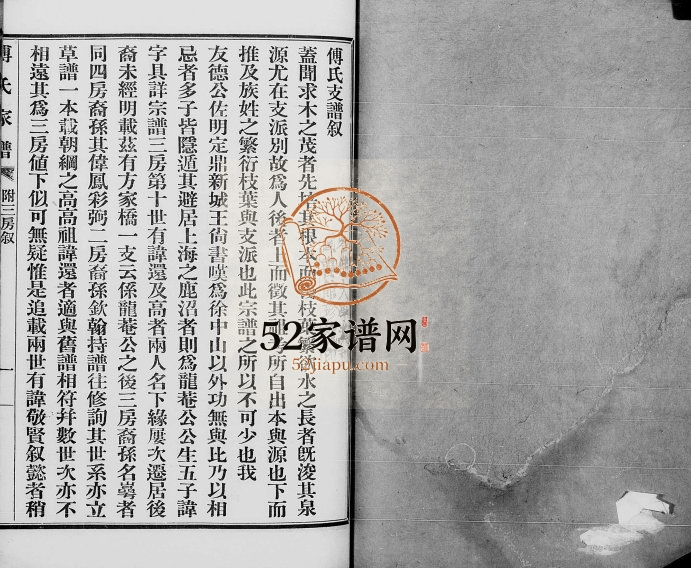 傅氏支譜叙
蓋聞求木之茂者先培其根本而後枝葉繁欲水之長者旣浚其泉
源尤在支派別故爲人後者上而徵其祖之所自出本與源也下而
推及族姓之繁衍枝葉與支派也此宗譜之所以不可少也我
友德公佐明定鼎新城王尙書嘆爲徐中山以外功無與比乃以相
忌者多子皆隱遁其避居上海之鹿沼者則爲龍菴公公生五子諱
字具詳宗譜三房第十世有諱還及高者兩人名下緣屢次遷居後
裔未經明載茲有方家橋一支云係龍菴公之後三房裔孫名蕚者
同四房裔孫其偉鳳彩弼二房裔孫欽翰持譜往修詢其世系亦立
草譜一本載朝綱之高高祖諱還者適與舊譜相符幷數世次亦不
相遠其爲三房値下似可無疑惟是追載兩世有諱敬賢叙懿者稍
傅氏家譜
附三房叙
一
52家谱网
52jiapu.com